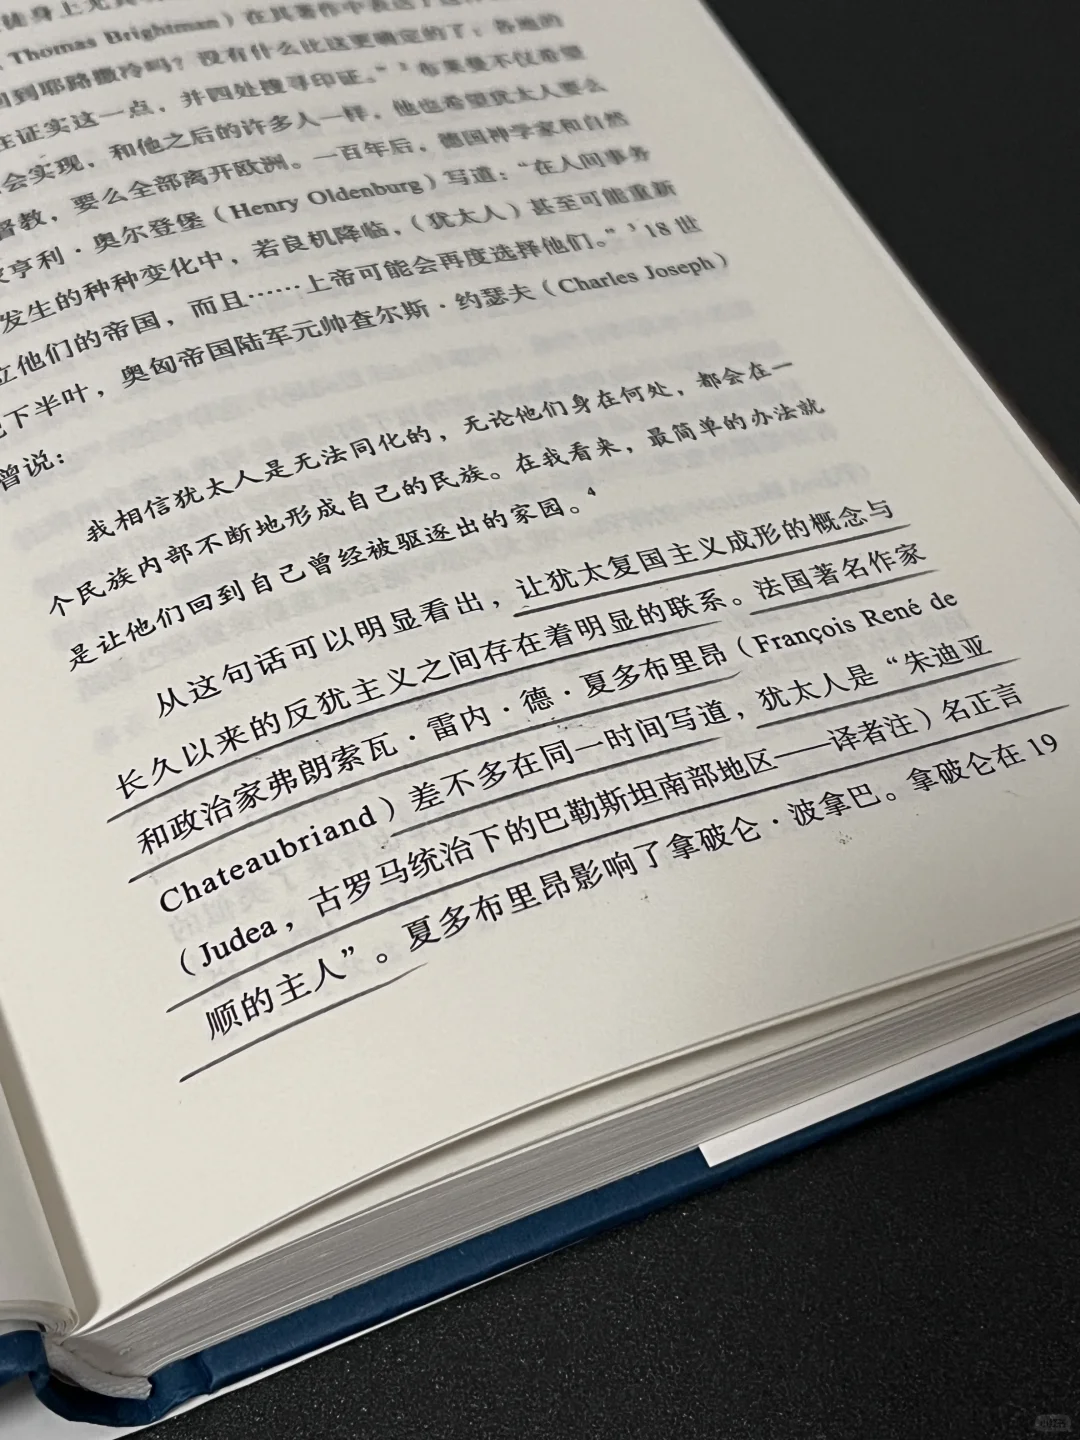 徒身上尤其
Thomas Brightman）在其著作中表达了这种
回到耶路撒冷吗？没有什么比这更确定的了；各地的
在证实这一点，并四处搜寻印证。”² 布莱曼不仅希望
会实现，和他之后的许多人一样，他也希望犹太人要么
督教，要么全部离开欧洲。一百年后，德国神学家和自然
家亨利·奥尔登堡（Henry Oldenburg）写道：“在人间事务
发生的种种变化中，若良机降临，（犹太人）甚至可能重新
立他们的帝国，而且……上帝可能会再度选择他们。”³ 18 世
纪下半叶，奥匈帝国陆军元帅查尔斯·约瑟夫（Charles Joseph）
曾说：
我相信犹太人是无法同化的，无论他们身在何处，都会在一
个民族内部不断地形成自己的民族。在我看来，最简单的办法就
是让他们回到自己曾经被驱逐出的家园。⁴
从这句话可以明显看出，让犹太复国主义成形的概念与
长久以来的反犹主义之间存在着明显的联系。法国著名作家
和政治家弗朗索瓦·雷内·德·夏多布里昂（François René de
Chateaubriand）差不多在同一时间写道，犹太人是“朱迪亚
（Judea，古罗马统治下的巴勒斯坦南部地区——译者注）名正言
顺的主人”。夏多布里昂影响了拿破仑·波拿巴。拿破仑在 19